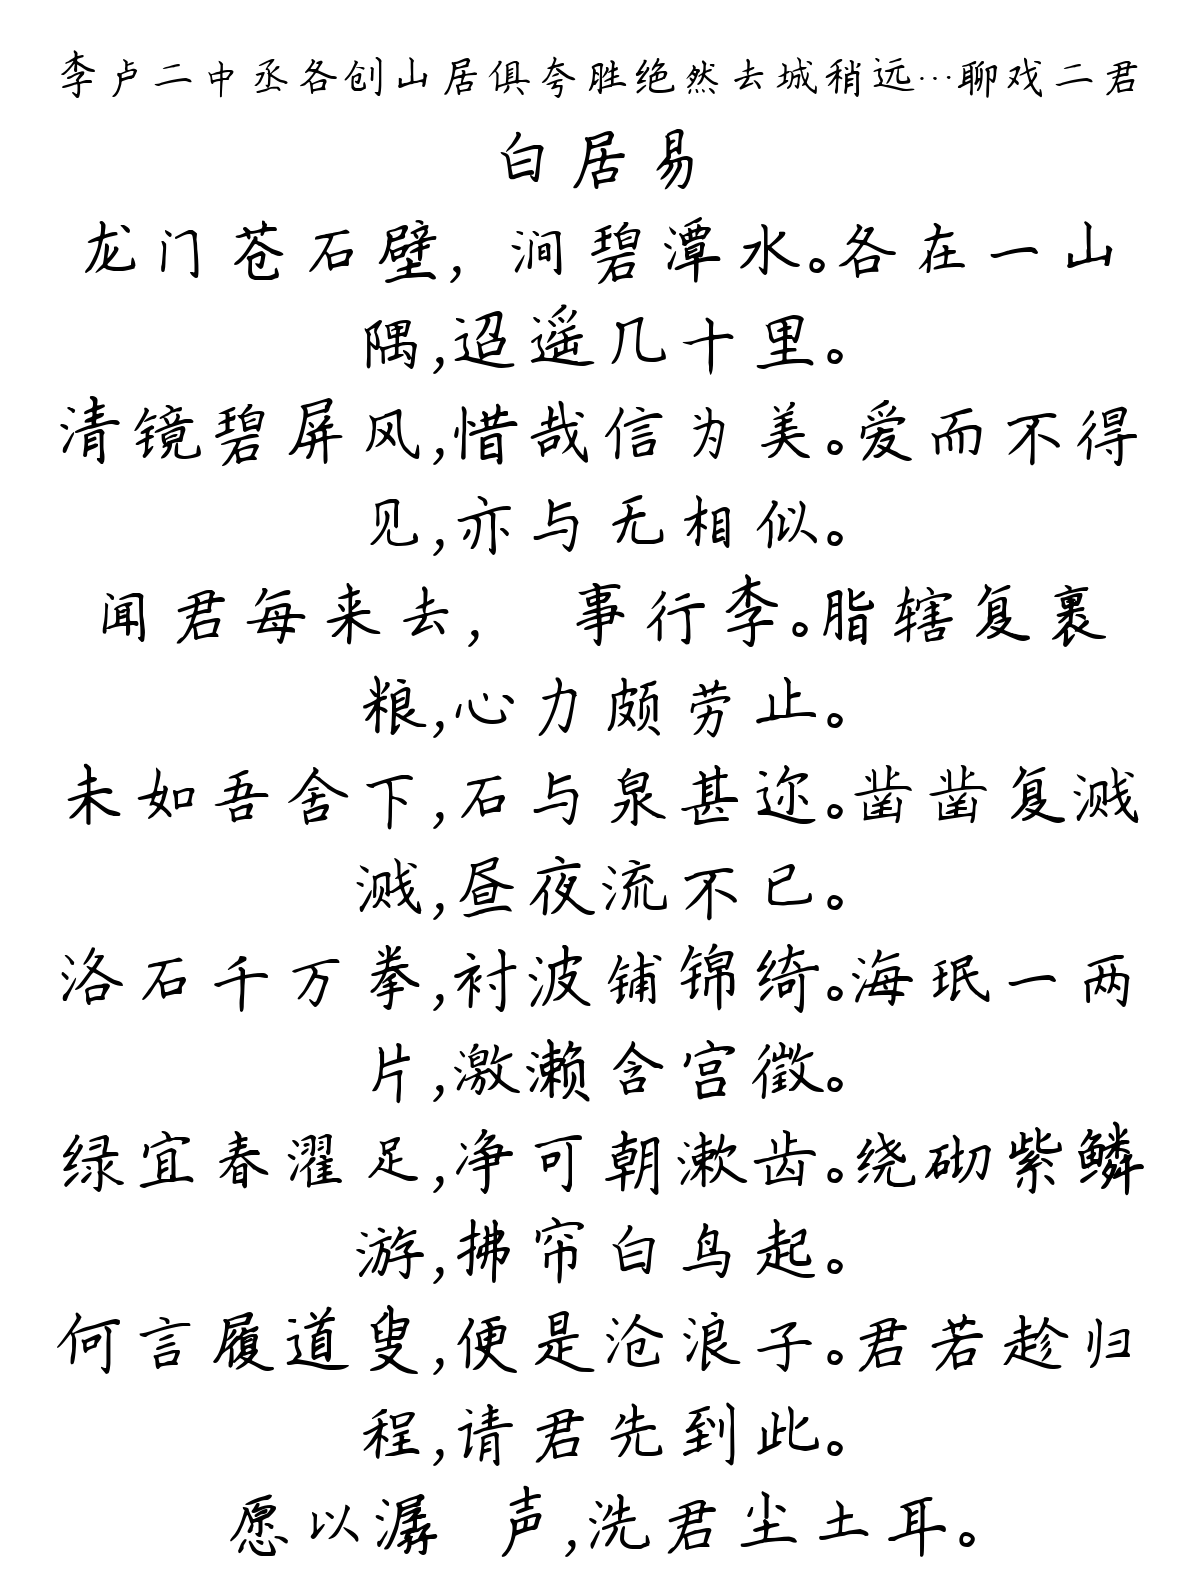 李卢二中丞各创山居俱夸胜绝然去城稍远…聊戏二君
白居易
龙门苍石壁，涧碧潭水。各在一山
隅，迢遥几十里。
清镜碧屏风，惜哉信为美。爱而不得
见，亦与无相似。
闻君每来去， 事行李。脂辖复裹
粮，心力颇劳止。
未如吾舍下，石与泉甚迩。凿凿复溅
溅，昼夜流不已。
洛石千万拳，衬波铺锦绮。海珉一两
片，激濑含宫徵。
绿宜春濯足，净可朝漱齿。绕砌紫鳞
游，拂帘白鸟起。
何言履道叟，便是沧浪子。君若趁归
程，请君先到此。
愿以潺 声，洗君尘土耳。